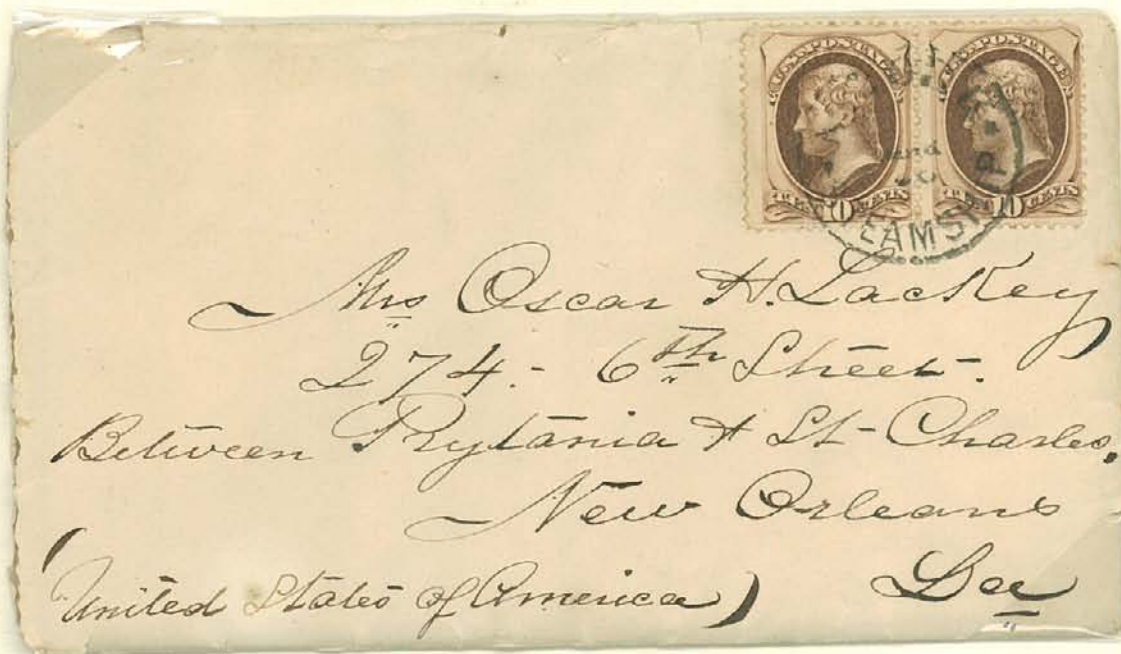 U.S. POSTAGE U.S. POSTAGE
TEN 10 CENTS TEN 10 CENTS
EAMSHIP
Mrs Oscar H. Lackey
274.- 6th Street-
Between Prytania & St-Charles,
New Orleans
Loa
(United States of America)